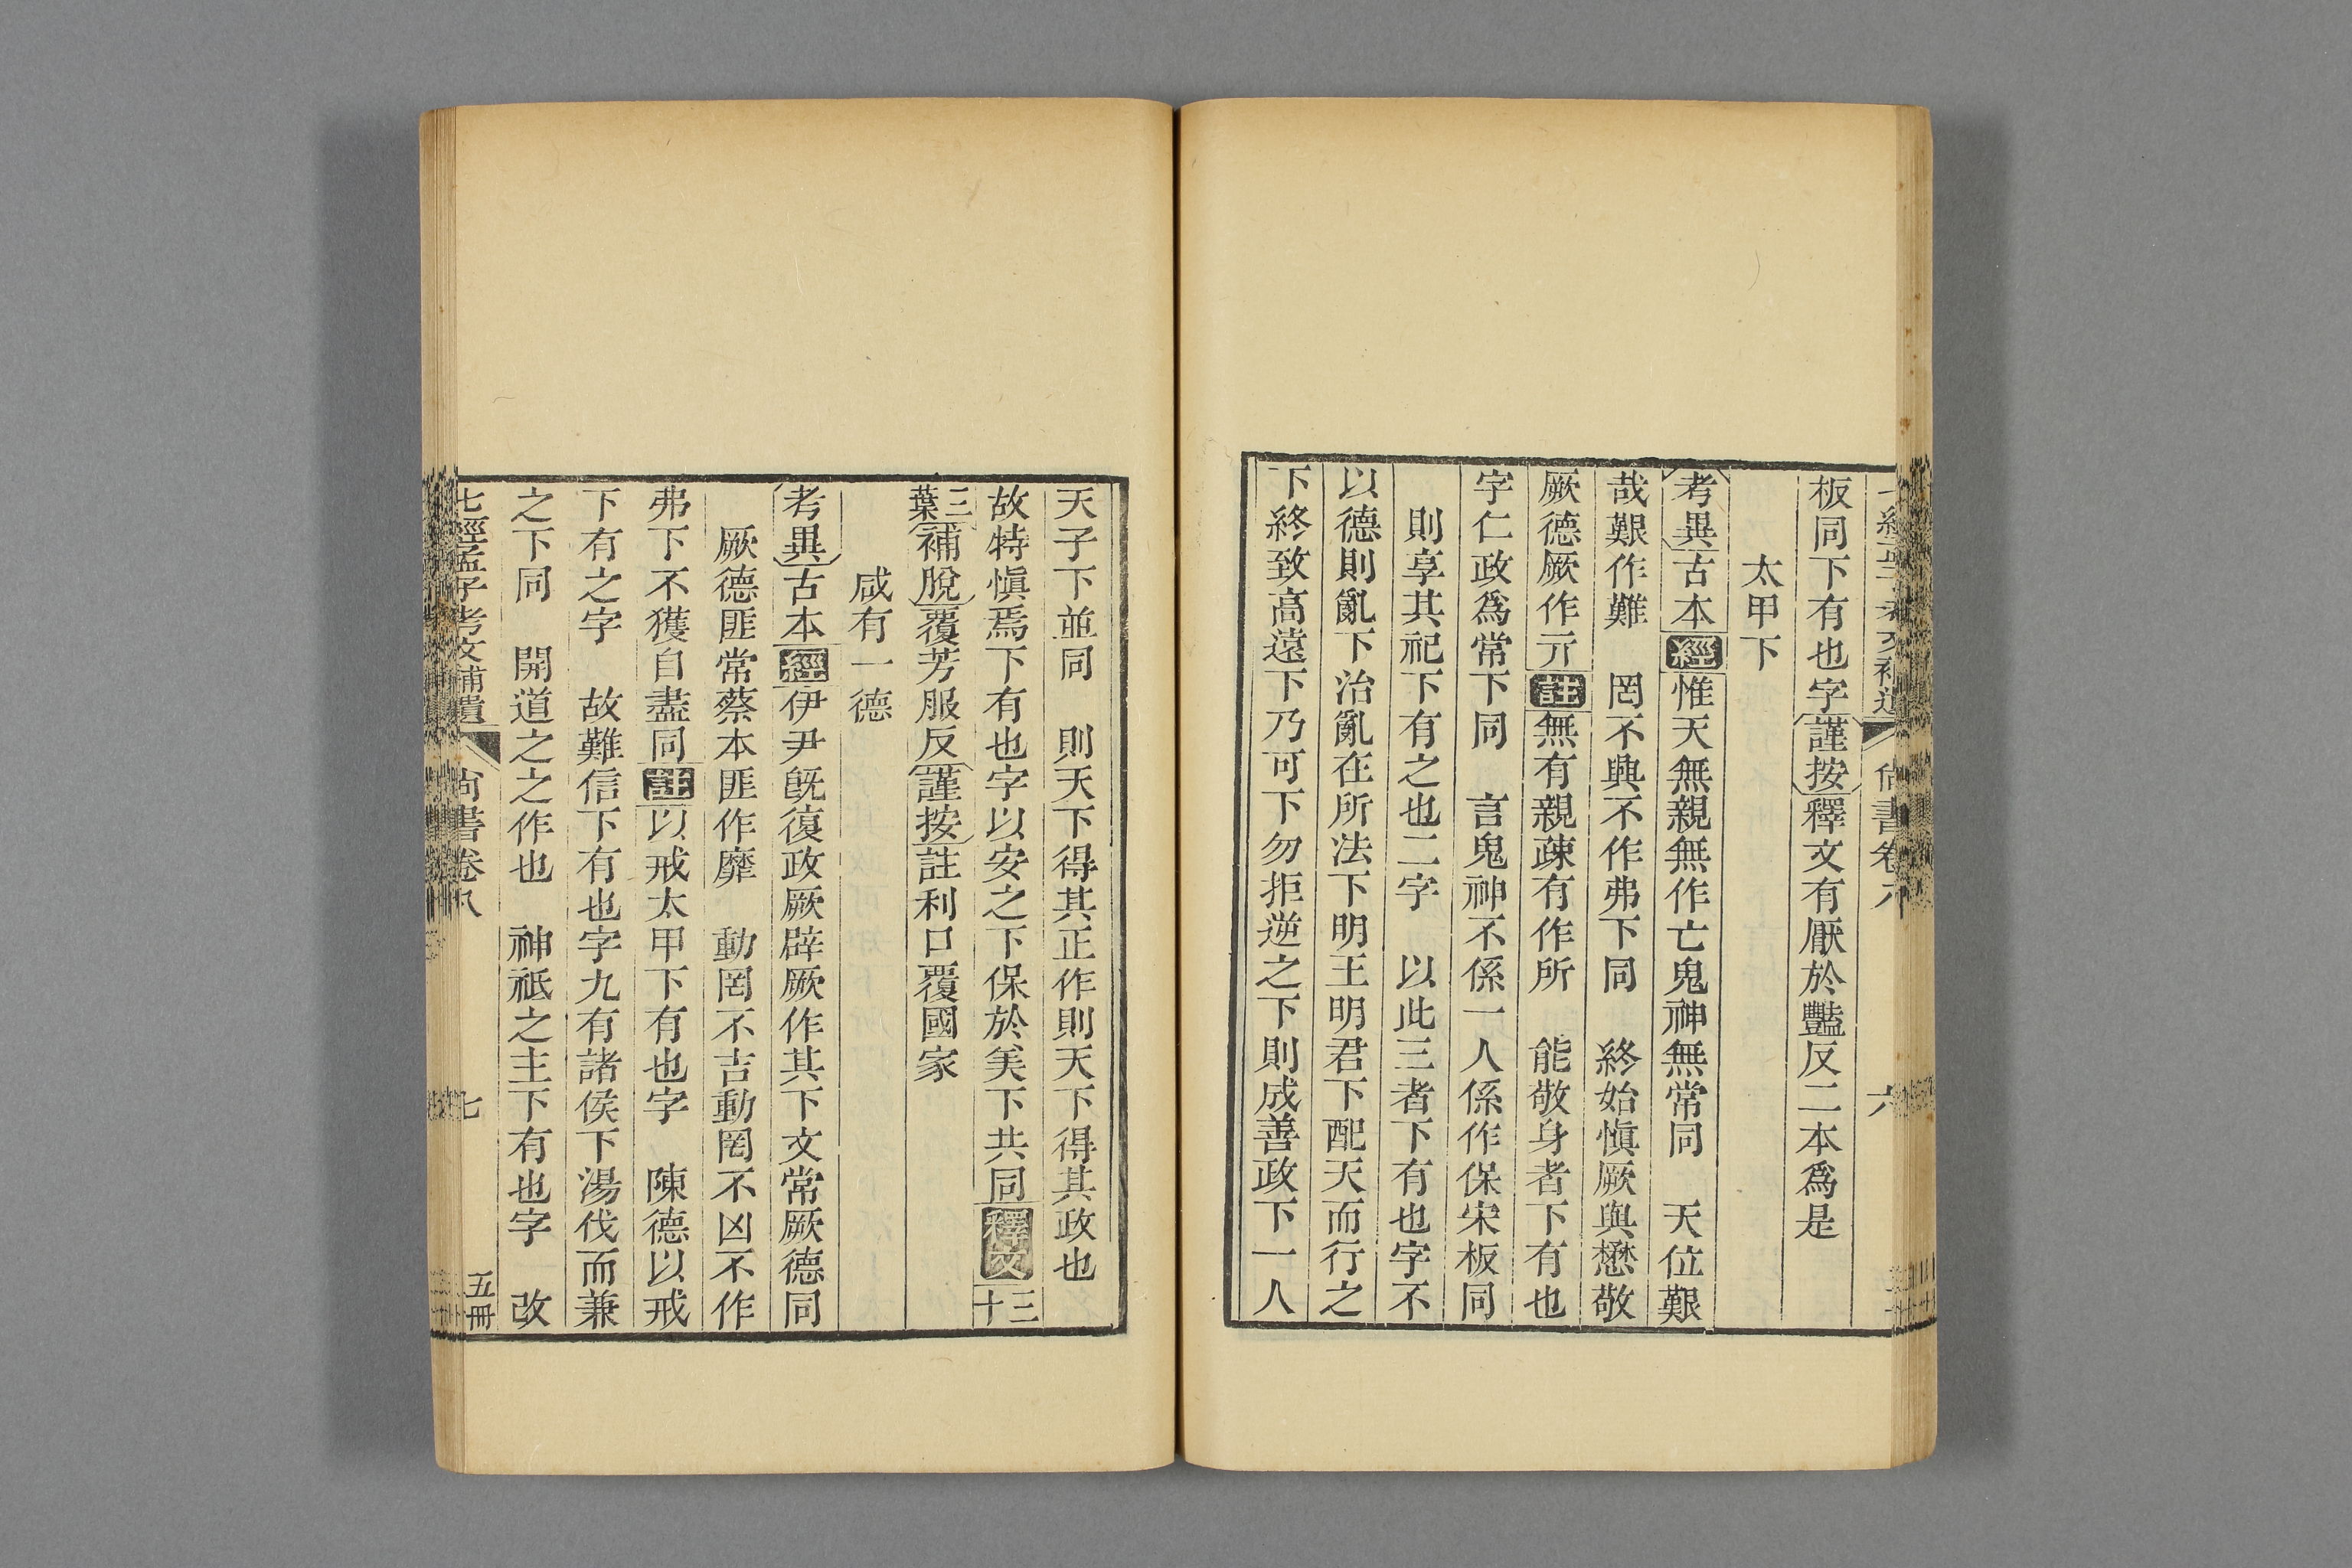 板同下有也字謹按釋文有厭於豔反二本爲是
太甲下
考異古本經惟天無親無作亡鬼神無常同　天位艱
哉艱作難　罔不興不作弗下同　終始愼厥與懋敬
厥德厥作亓註無有親疎有作所　能敬身者下有也
字仁政爲常下同　言鬼神不係一人係作保宋板同
則享其祀下有之也二字　以此三者下有也字不
以德則亂下治亂在所法下明王明君下配天而行之
下終致高遠下乃可下勿拒逆之下則成善政下一人
天子下並同　則天下得其正作則天下得其政也
故特愼焉下有也字以安之下保於美下共同釋文三十
三葉補脫覆芳服反謹按註利口覆國家
咸有一德
考異古本經伊尹旣復政厥辟厥作其下文常厥德同
厥德匪常蔡本匪作靡　動罔不吉動罔不凶不作
弗下不獲自盡同註以戒太甲下有也字　陳德以戒
下有之字　故難信下有也字九有諸侯下湯伐而兼
之下同　開道之之作也　神祗之主下有也字　改
七經孟子考文補遺　尚書卷八　七　五冊